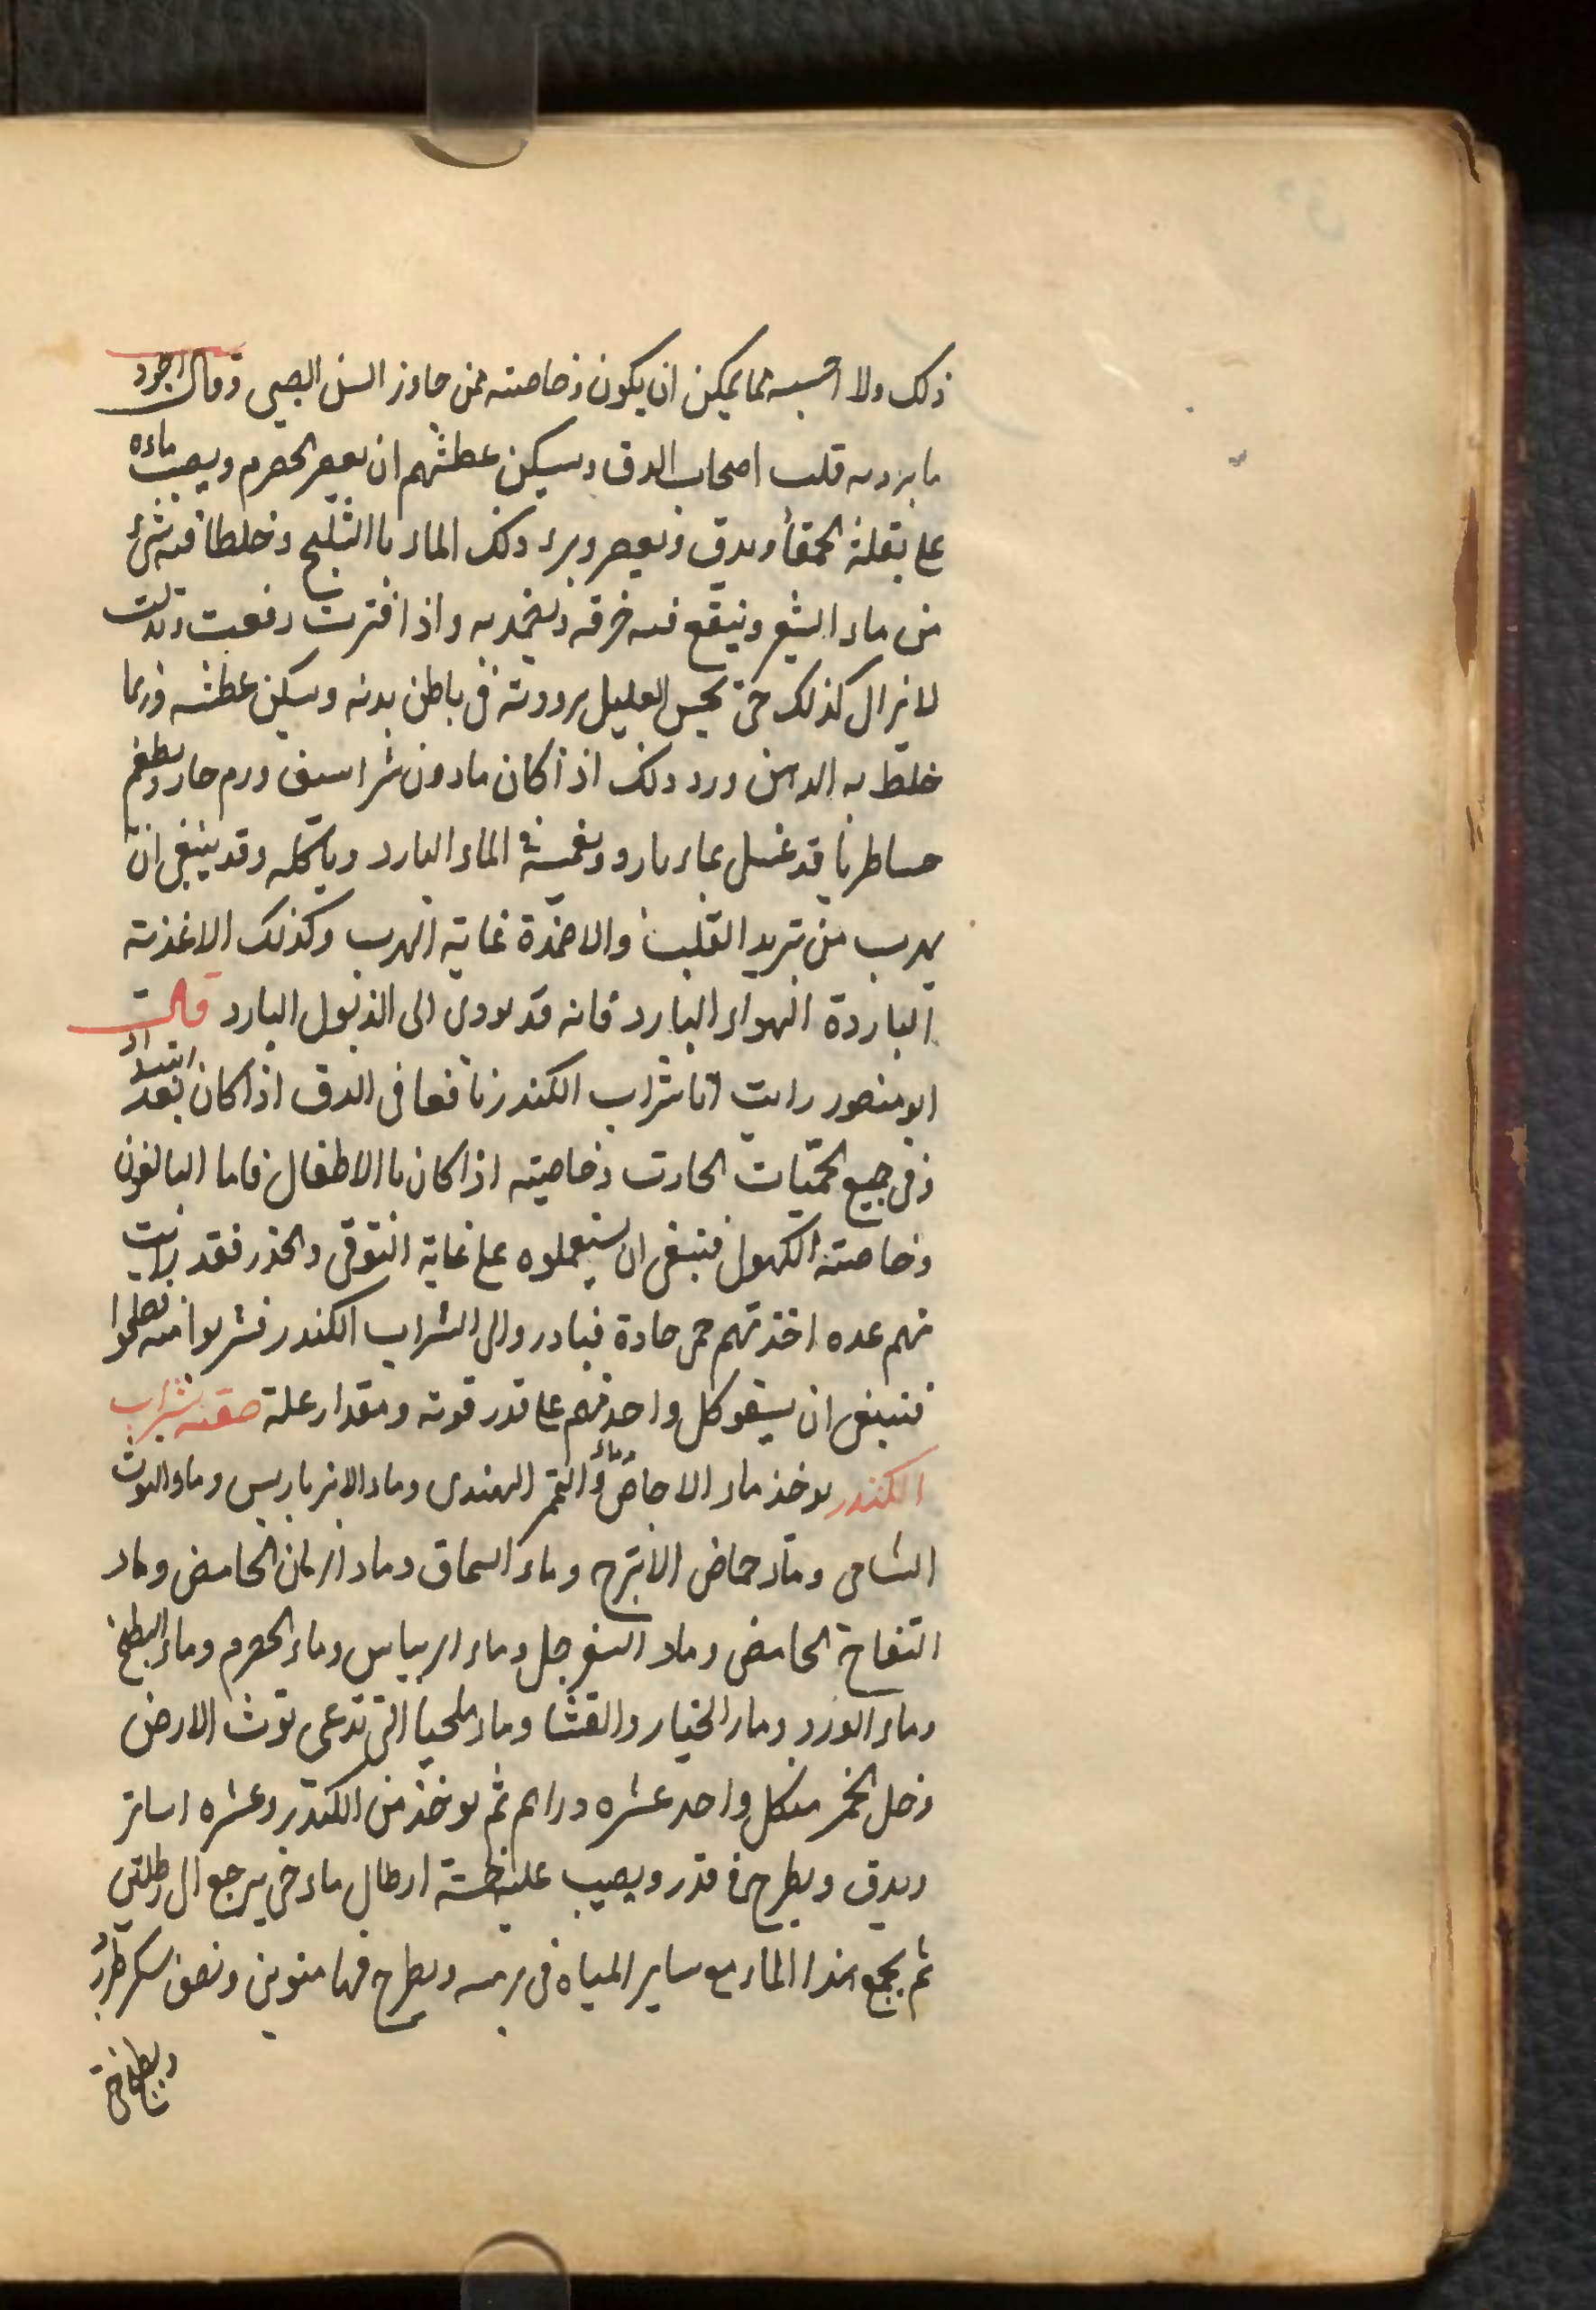 ذلك ولا احسبه مما يمكن ان يكون وخاصته ممن جاوز السن الصبى وقال اجود
ما برد به قلب اصحاب الدق وسكن عطشهم ان يعصر الحصرم ويصب ماءه
على بقلة الحمقاء ويدق ويعصر وبرد ذلك الماء باالثلج وخلطا فيه شئ
من ماء الشعير وينقع فيه خرقه ويضمد به واذا فترت رفعت وبدلت
لا يزال كذلك حتى يحس العليل برودته فى باطن بدنه وسكن عطشه وربما
خلط به الدهن ورد وذلك اذا كان مادون شراسيف ورم حار ويطعم
قد غسل بماء بارد ويغمسه فى الماء البارد وياكله وقد ينبغى ان
يهرب من تبريد القلب والاضمدة غاية الهرب وكذلك الاغذية
الباردة الهواء البارد فانه قد يودى الى الذبول البارد قال
ابو منصور رايت انا شراب الكندر نافعا فى الدق اذا كان بعد ابتداء
وفى جميع الحميات الحارت وخاصيته اذا كان باالاطفال فاما البالغون
وخاصته الكهول فينبغى ان يستعملوه على غاية التوقى والحذر فقد رايت
منهم عده اخذتهم حمى حادة فبادروا الى الشراب الكندر فشربوا منه
فينبغى ان يسقو كل واحد منهم على قدر قوته ومقدار علة صفته شراب
الكندر يوخذ ماء الاجاص وماء التمر الهندى وماء الانبرباريس وماء التوث
الشامى وماء حماض الاترج وماء السماق وماء الرمان الحامض وماء
التفاح الحامض وماء السفرجل وماء الريباس وماء الحصرم وماء البطيخ
وماء الورد وماء الخيار والقثا وماء التى تدعى توث الارض
وخل الخمر منكل واحد عشره دراهم ثم يوخذ من الكندر وعشره اساتر
ويدق ويطرح فى قدر ويصب عليه خمسة ارطال ماء حتى يرجع الى رطلين
ثم يجمع هذا الماء مع ساير المياه فى برمه ويطرح فيها منوين ونصف سكر طبرزد
ويطبخ حتى